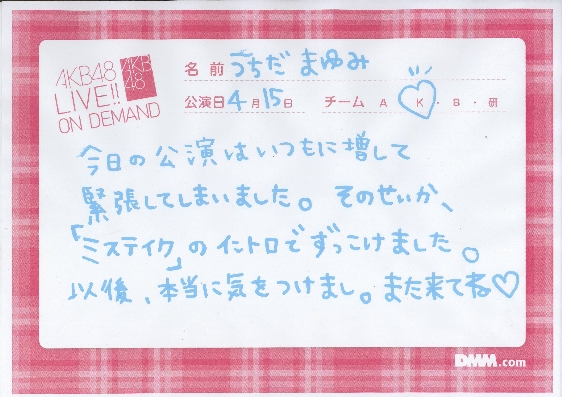 AKB48
LIVE!!
ON DEMAND
AKB
48
名前 うちだ まゆみ
公演日 4月15日 チーム A・K・B・研
今日の公演はいつもに増して
緊張してしまいました。そのせいか、
「ミステイク」のイントロでずっこけました。
以後、本当に気をつけまし。また来てね♡
DMM.com